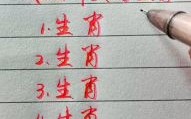 1.生肖
2.生肖
3.生肖
4.生肖